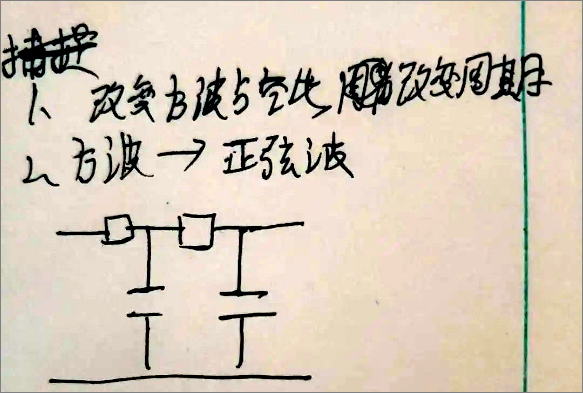 捕捉
1、改变方波占空比,改变周期
2、方波→正弦波